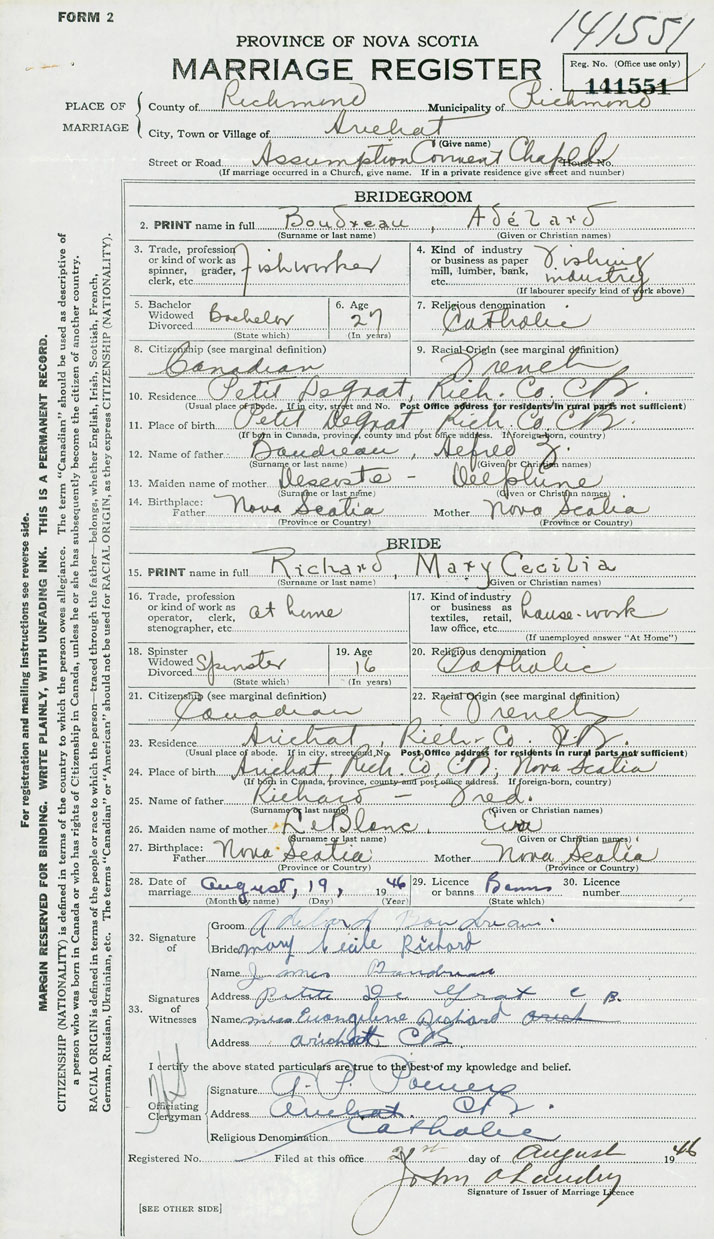 FORM 2
141551
PROVINCE OF NOVA SCOTIA
MARRIAGE REGISTER
Reg. No. (Office use only)
141551
PLACE OF MARRIAGE
County of Richmond Municipality of Richmond
City, Town or Village of Arichat
(Give name)
Street or Road Assumption Convent Chapel House No.
(If marriage occurred in a Church, give name. If in a private residence give street and number)
BRIDEGROOM
2. PRINT name in full Boudreau, Adélard
(Surname or last name) (Given or Christian names)
3. Trade, profession or kind of work as spinner, grader, clerk, etc. fishworker
4. Kind of industry or business as paper mill, lumber, bank, etc. Fishing industry
(If labourer specify kind of work above)
5. Bachelor Widowed Divorced Bachelor
(State which)
6. Age 27
(In years)
7. Religious denomination
Catholic
8. Citizenship (see marginal definition)
Canadian
9. Racial Origin (see marginal definition)
French
10. Residence Petit DeGrat, Rich. Co. C.B.
(Usual place of abode. If in city, street and No. Post Office address for residents in rural parts not sufficient)
11. Place of birth Petit DeGrat Rich. Co. C.B.
(If born in Canada, province, county and post office address. If foreign-born, country)
12. Name of father Boudreau, Alfred
(Surname or last name) (Given or Christian names)
13. Maiden name of mother - Delphine
(Surname or last name) (Given or Christian names)
14. Birthplace: Father Nova Scotia Mother Nova Scotia
(Province or Country) (Province or Country)
BRIDE
15. PRINT name in full Richard, Mary Cecilia
(Surname or last name) (Given or Christian names)
16. Trade, profession or kind of work as operator, clerk, stenographer, etc. at home
17. Kind of industry or business as textiles, retail, law office, etc. house-work
(If unemployed answer "At Home")
18. Spinster Widowed Divorced Spinster
(State which)
19. Age 16
(In years)
20. Religious denomination
Catholic
21. Citizenship (see marginal definition)
Canadian
22. Racial Origin (see marginal definition)
French
23. Residence Arichat, Rich. Co. C.B.
(Usual place of abode. If in city, street and No. Post Office address for residents in rural parts not sufficient)
24. Place of birth Arichat, Rich. Co, CB, Nova Scotia
(If born in Canada, province, county and post office address. If foreign-born, country)
25. Name of father Richard - Fred.
(Surname or last name) (Given or Christian names)
26. Maiden name of mother LeBlanc, Eva
(Surname or last name) (Given or Christian names)
27. Birthplace: Father Nova Scotia Mother Nova Scotia
(Province or Country) (Province or Country)
28. Date of marriage August, 19, 1946
(Month by name) (Day) (Year)
29. Licence or banns Banns
(State which)
30. Licence number
32. Signature of
Groom Adelard Boudreau.
Bride Mary Cecile Richard
33. Signatures of Witnesses
Name James Boudreau
Address Petite De Grat C B.
Name miss Evangeline Richard
Address arichat CB
I certify the above stated particulars are true to the best of my knowledge and belief.
Officiating Clergyman
Signature
Address Arichat CB.
Religious Denomination Catholic
Registered No. Filed at this office day of August 1946
John
Signature of Issuer of Marriage Licence
[SEE OTHER SIDE]
For registration and mailing instructions see reverse side.
MARGIN RESERVED FOR BINDING. WRITE PLAINLY, WITH UNFADING INK. THIS IS A PERMANENT RECORD.
CITIZENSHIP (NATIONALITY) is defined in terms of the country to which the person owes allegiance. The term "Canadian" should be used as descriptive of
a person who was born in Canada or who has rights of Citizenship in Canada, unless he or she has subsequently become the citizen of another country.
RACIAL ORIGIN is defined in terms of the people or race to which the person—traced through the father—belongs, whether English, Irish, Scottish, French,
German, Russian, Ukrainian, etc. The terms "Canadian" or "American" should not be used for RACIAL ORIGIN, as they express CITIZENSHIP (NATIONALITY).